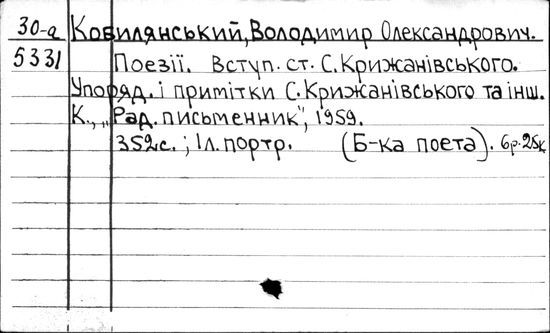 30-а Кобилянський, Володимир Олександрович.
5331 Поезії. Вступ. ст. С. Крижанівського.
Упоряд. і примітки С. Крижанівського та інш.
К., „Рад. письменник", 1959.
352 с.; 1 л. портр. (Б-ка поета). 6р.25к